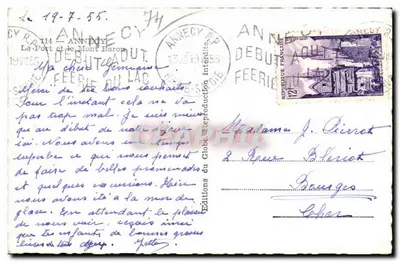 Le 19-7-55. 74
114 ANNECY
Le Port et le Mont Baron
ANNECY
DEBUT AOUT
FEERIE DU LAC
ANNECY R.P.
ANNECY
DEBUT AOUT
FEERIE
12F
Ma chère Germaine
Merci de tes bons souhaits
Pour l'instant cela ne va
pas trop mal. Je suis mieux
qu'au début de notre
ici. Nous avons un temps
superbe ce qui nous permet
de faire de belles promenades
et quelques excursions. Hier
nous avons été à la mer de
glace. En attendant le plaisir
de nous voir, reçois ainsi
que tes enfants de bonnes grosses
bises de tes
Editions du Globe Reproduction Interdite
Madame J. Pierrot
2 Rue Blériot
Bourges
Cher